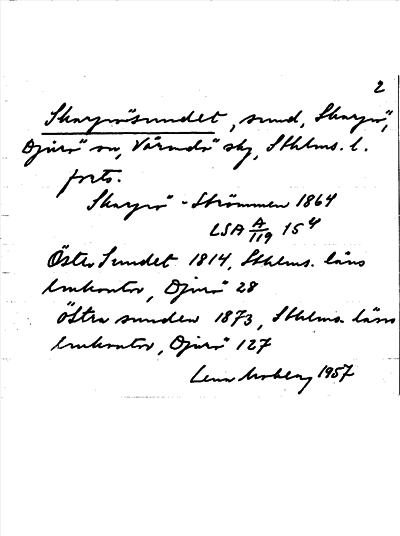 2
Skarpösundet, sund, Skarpö,
Djurö sn, Värmdö skg, Sthlms. l.
forts.
Skarpö-Strömmen 1864
LSA A/119 15 4
Öster Sundet 1814, Sthlms. läns
lmkontor, Djurö 28
Östra sunden 1873, Sthlms. läns
lmkontor, Djurö 127
Lena Moberg 1957